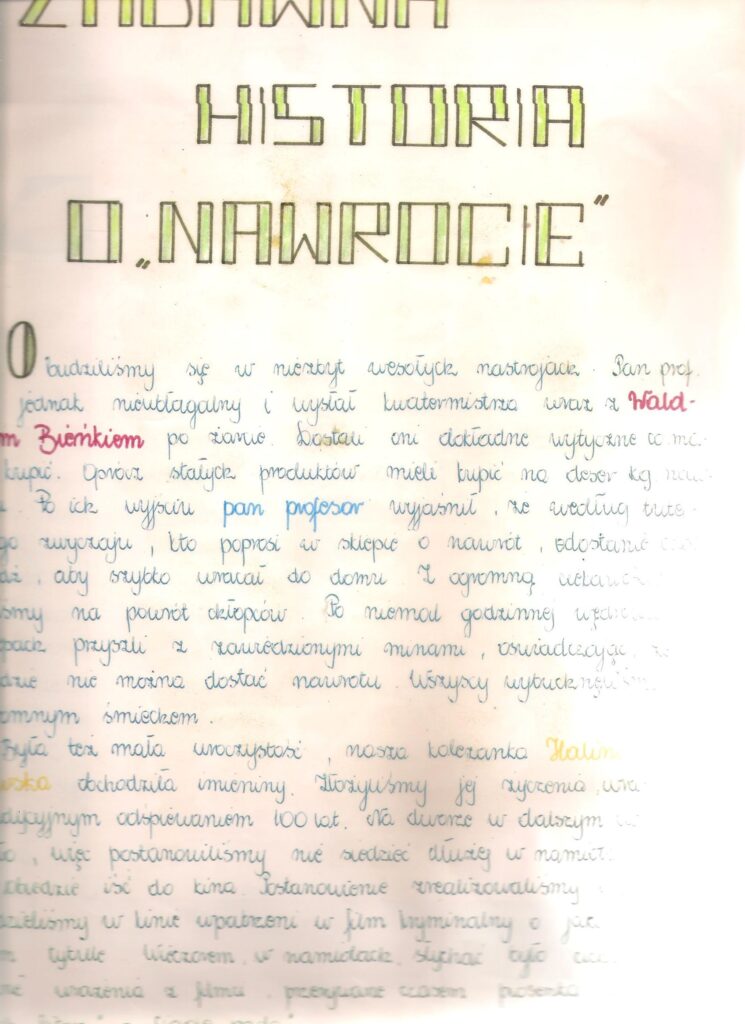 ZABAWNA
HISTORIA
O „NAWROCIE"
Obudziliśmy się w niezbyt wesołych nastrojach. Pan prof.
jednak nieubłagalny i wysłał kwatermistrza wraz z Wald-
m Bieńkiem po żarcie. Dostali oni dokładne wytyczne co ma-
kupić. Oprócz stałych produktów mieli kupić na deser kg
Po ich wyjściu pan profesor wyjaśnił, że według tute-
go zwyczaju, kto poprosi w sklepie o nawrót, odostanie
dź, aby szybko wracał do domu. Z ogromną
śmy na powrót chłopców. Po niemal godzinnej
pach przyszli z zawiedzionymi minami, oświadczając, że
dzie nie można dostać nawrotu. Wszyscy wybuchnęliśmy
omnym śmiechem.
Była też mała uroczystość, nasza koleżanka Halin
wska obchodziła imieniny. Złożyliśmy jej życzenia, wra
dycyjnym odśpiewaniem 100 lat. Na dworze w dalszym
o, więc postanowiliśmy nie siedzieć dłużej w namiot
obiedzie iść do kina. Postanowienie zrealizowaliśmy
dzieliśmy w kinie wpatrzeni w film kryminalny o
m tytule. Wieczorem w namiotach słychać było
wrażenia z filmu, przerywane czasem piosenką